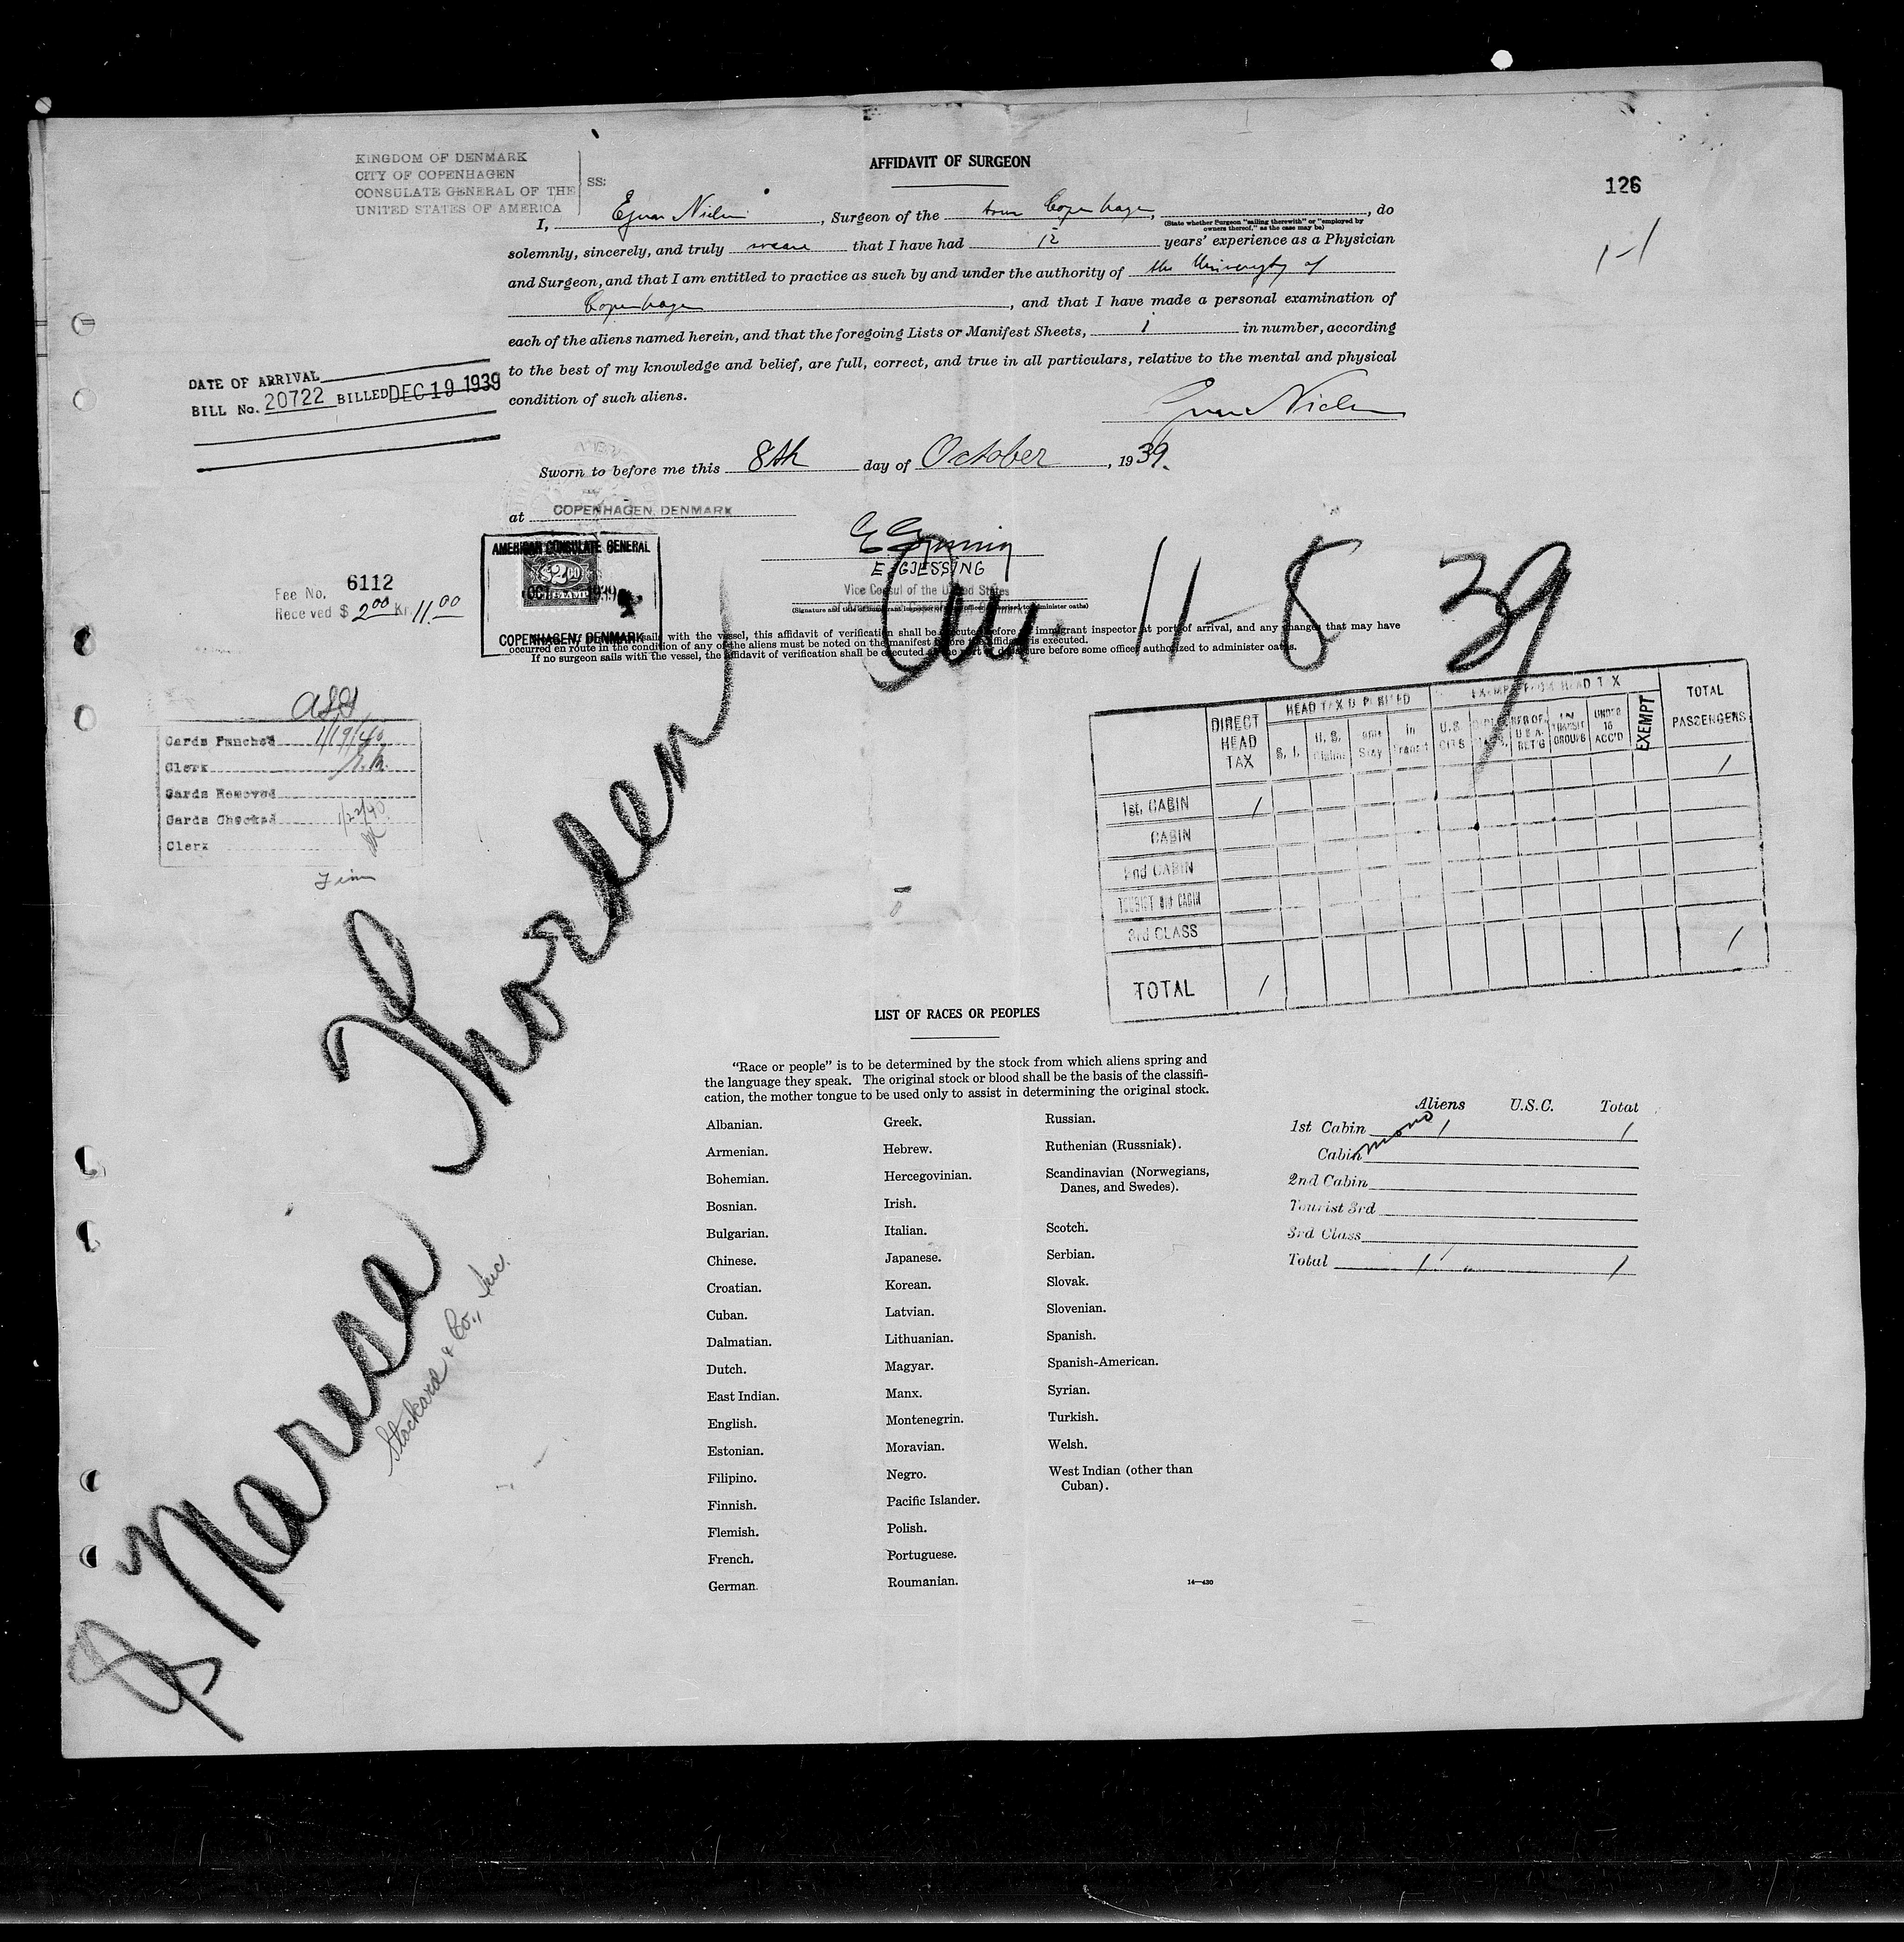 AFFIDAVIT OF SURGEON
126
KINGDOM OF DENMARK
CITY OF COPENHAGEN
CONSULATE GENERAL OF THE
UNITED STATES OF AMERICA
SS:
I, Nielsen, Surgeon of the Copenhagen, , do
(State whether Surgeon "sailing therewith" or "employed by
owners thereof," as the case may be)
solemnly, sincerely, and truly swear that I have had 12 years' experience as a Physician
and Surgeon, and that I am entitled to practice as such by and under the authority of the University of
Copenhagen, and that I have made a personal examination of
each of the aliens named herein, and that the foregoing Lists or Manifest Sheets, 1 in number, according
to the best of my knowledge and belief, are full, correct, and true in all particulars, relative to the mental and physical
condition of such aliens.
1-1
DATE OF ARRIVAL
BILL No. 20722 BILLED DEC 19 1939
Sworn to before me this 8th day of October, 1939.
at COPENHAGEN, DENMARK
E. GJESSING
Vice Consul of the United States
(Signature and title of immigrant inspector or officer authorized to administer oaths)
AMERICAN CONSULATE GENERAL
$2.00
COPENHAGEN, DENMARK
Fee No. 6112
Received $ 2.00 Kr. 11.00
sails with the vessel, this affidavit of verification shall be executed before an immigrant inspector at port of arrival, and any changes that may have
occurred en route in the condition of any of the aliens must be noted on the manifest before the affidavit is executed.
If no surgeon sails with the vessel, the affidavit of verification shall be executed at the port of departure before some officer authorized to administer oaths.
11-8 39
Cards Punched 1/19/40
Clerk
Cards Removed
Cards Checked 1/22/40
Clerk
DIRECT HEAD TAX
HEAD TAX DEPOSITED
S. I.
U. S.
Stay
In Transit
EXEMPT FROM HEAD TAX
U.S. CITS
IN TRANSIT GROUPS
UNDER 16 ACC'D
EXEMPT
TOTAL PASSENGERS
1st. CABIN 1 1
CABIN
2nd CABIN
TOURIST 3rd CABIN
3rd CLASS
TOTAL 1 1
Maresa Thorden
Stockard & Co., Inc.
LIST OF RACES OR PEOPLES
"Race or people" is to be determined by the stock from which aliens spring and
the language they speak. The original stock or blood shall be the basis of the classifi-
cation, the mother tongue to be used only to assist in determining the original stock.
Albanian.
Armenian.
Bohemian.
Bosnian.
Bulgarian.
Chinese.
Croatian.
Cuban.
Dalmatian.
Dutch.
East Indian.
English.
Estonian.
Filipino.
Finnish.
Flemish.
French.
German.
Greek.
Hebrew.
Hercegovinian.
Irish.
Italian.
Japanese.
Korean.
Latvian.
Lithuanian.
Magyar.
Manx.
Montenegrin.
Moravian.
Negro.
Pacific Islander.
Polish.
Portuguese.
Roumanian.
Russian.
Ruthenian (Russniak).
Scandinavian (Norwegians,
Danes, and Swedes).
Scotch.
Serbian.
Slovak.
Slovenian.
Spanish.
Spanish-American.
Syrian.
Turkish.
Welsh.
West Indian (other than
Cuban).
14—430
Aliens U.S.C. Total
1st Cabin 1 1
Cabin
2nd Cabin
Tourist 3rd
3rd Class
Total 1 1